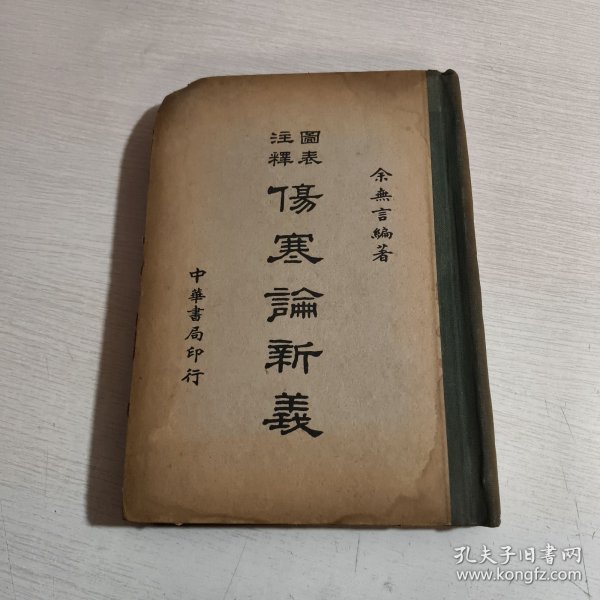 余無言編著
圖表
注釋
傷寒論新義
中華書局印行
孔夫子旧书网
www.kongfz.com